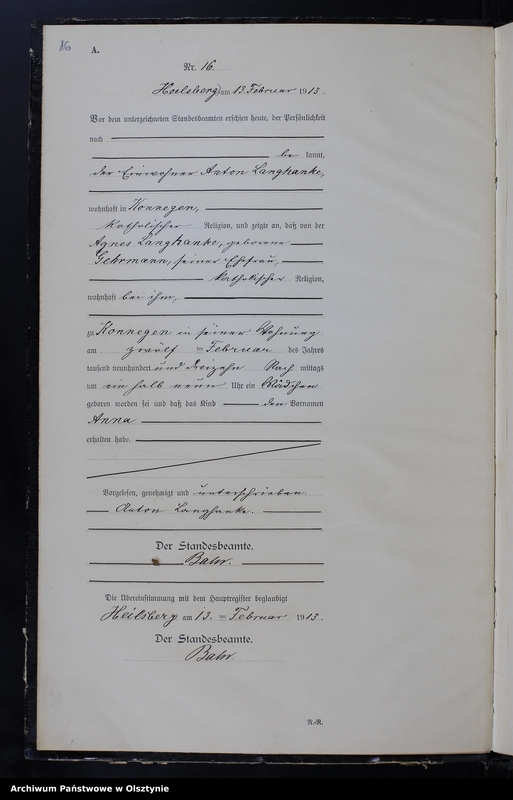 16
A.
Nr. 16.
Heilsberg, am 13. Februar 1913.
Vor dem unterzeichneten Standesbeamten erschien heute, der Persönlichkeit
nach
be kannt,
der Einwohner Anton Langhanke,
wohnhaft in Konnegen,
katholischer Religion, und zeigte an, daß von der
Agnes Langhanke, geborene
Gehrmann, seiner Ehefrau,
katholischer Religion,
wohnhaft bei ihm,
zu Konnegen in seiner Wohnung
am zwölf ten Februar des Jahres
tausend neunhundert und dreizehn Nach mittags
um ein halb neun Uhr ein Mädchen
geboren worden sei und daß das Kind den Vornamen
Anna
erhalten habe.
Vorgelesen, genehmigt und unterschrieben.
Anton Langhanke.
Der Standesbeamte.
Bahr.
Die Übereinstimmung mit dem Hauptregister beglaubigt
Heilsberg am 13. ten Februar 1913.
Der Standesbeamte.
Bahr.
N.-R.
Archiwum Państwowe w Olsztynie